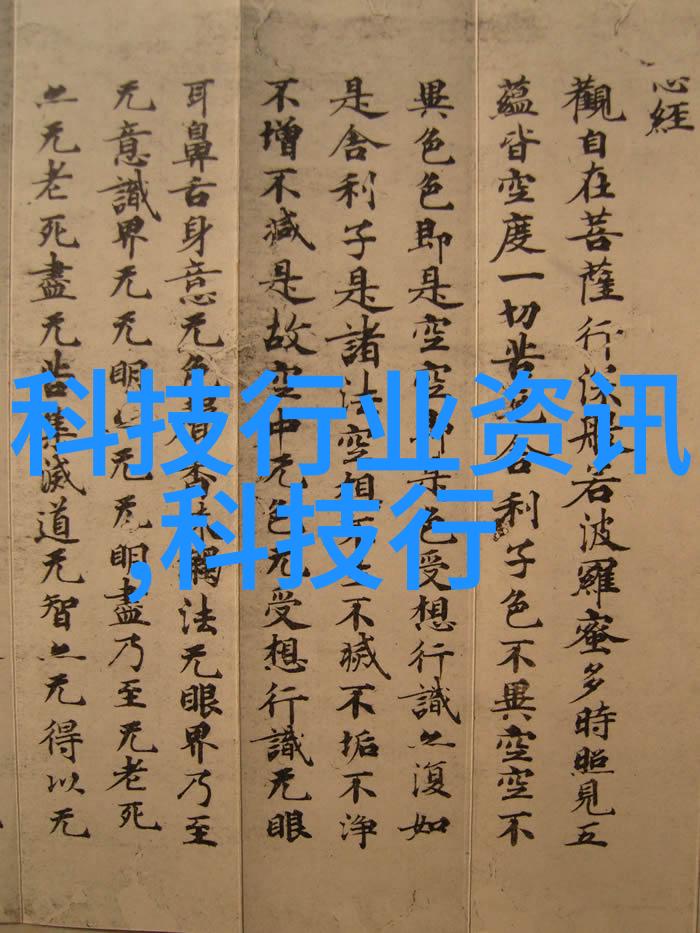 心經
觀自在菩薩行深般若波羅蜜多時照見五
蘊皆空度一切苦厄舍利子色不異空空不
異色色即是空空即是色受想行識亦復如
是舍利子是諸法空相不不滅不垢不淨
不增不減是故空中无色无受想行識无眼
耳鼻舌身意无色聲香味觸法无眼界乃至
无意識界无无明亦无无明盡乃至无老死
亦无老死盡无苦集滅道无智亦无得以无
科技行业资讯
,科技行